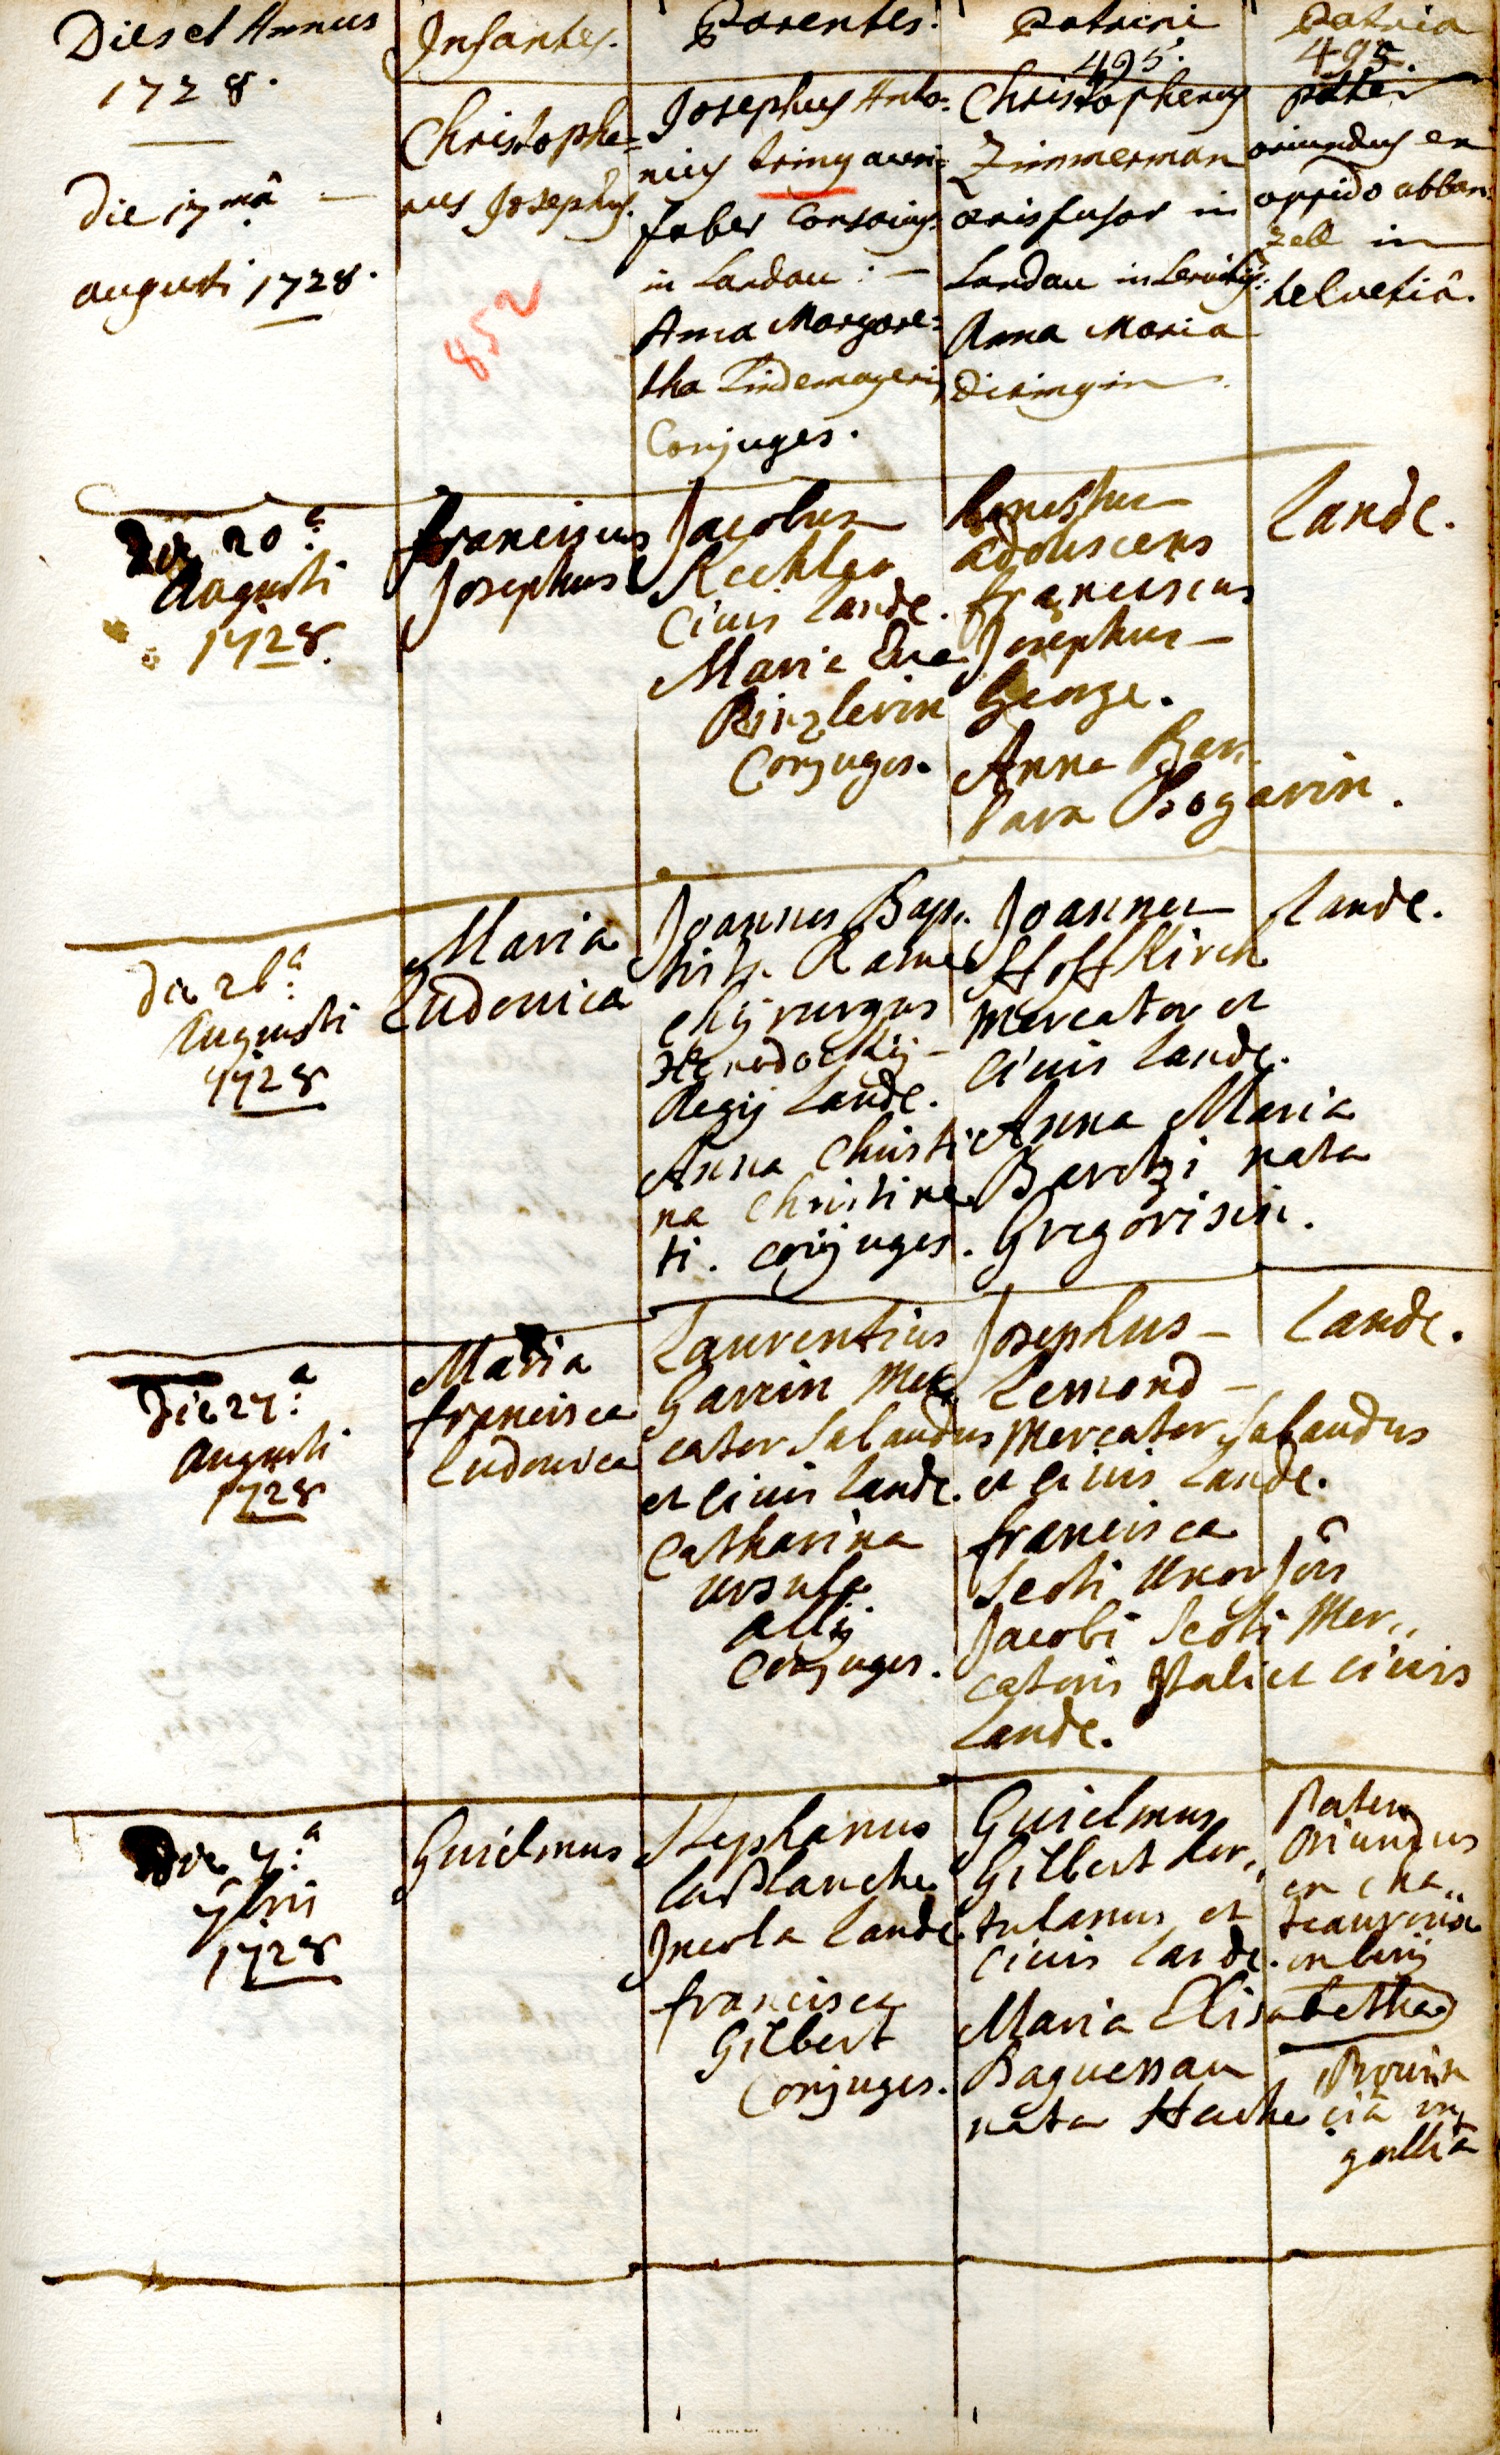 Dies et Annus
1728.
Infantes.
Parentes.
Patrini
495.
Patria
495.
Die 17 mâ
augusti 1728.
Christophe=
rus Josephus.
852
Josephus Anto=
nius auri=
faber
in Landau : —
Anna Margare=
tha Lindemayerin
Conjuges.
Christopherus
Zimmerman
aerisfusor in
Landau
Anna Maria
pater
oriundus ex
oppido abban=
zell in
helvetiâ.
Die 20 a:
Augusti
1728.
franciscus
Josephus
Jacobus
Kechler
Ciuis Landc.
Maria Eua
Conjuges.
honestus
adolescens
franciscus
Josephus —
George.
Anna Bar
bara
Landc.
die 26 a:
Augusti
1728
Maria
Ludouica
Joannes Bap.
tista Rame
chyrurgus
Regij Landc.
Anna Christi
na Christine
ti. conjuges.
Joannes
Hoffkirch
mercator et
Ciuis Landc.
Anna Maria
Bartzi nata
Landc.
Die 27 a:
Augusti
1728
Maria
francisca
Ludouica
Laurentius
Garrin Mer
cator Sabaudus
et Ciuis Landc.
Catharina
ursula
Conjuges.
Josephus —
Lemond —
Mercator Sabaudus
et Ciuis Landc.
francisca
Scoti uxor
Jacobi Scoti Mer,,
catoris Itali et Ciuis
Landc.
Landc.
Die 7 a:
7bris
1728
Guielmus
Stephanus
La Blanche
Incola Landc.
francisca
Gilbert
Conjuges.
Guielmus
Gilbert hor,,
tulanus et
Ciuis Landc.
Maria Elisabetha
Baguessau
nata Hache
Pater
Oriundus
ex cha,,
Prouin
cia in
gallia